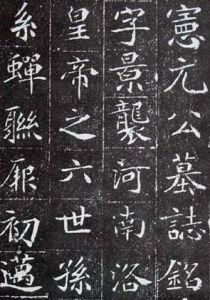 憲元公墓誌銘
字景襲河南洛
皇帝之六世孫
系蟬聯厥初邁